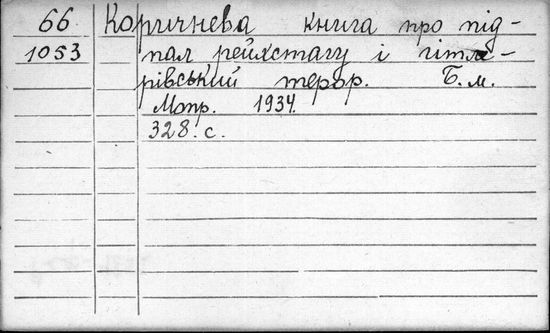 66 Коричнева книга про під-
1053 пал рейхстагу і гітле-
рівський терор. Б.м.
Мопр. 1934.
328 с.